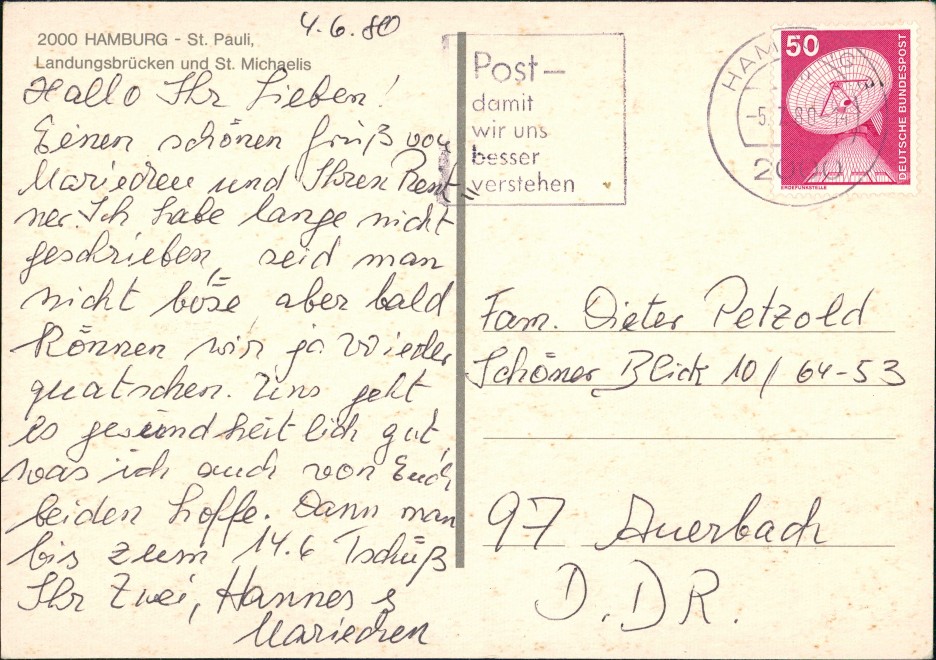 4.6.80
2000 HAMBURG - St. Pauli,
Landungsbrücken und St. Michaelis
Hallo Ihr Lieben!
Einen schönen Gruß von
Mariechen und Ihren Rent
ner. Ich habe lange nicht
geschrieben, seid man
nicht böse, aber bald
können wir ja wieder
quatschen. Uns geht
es gesundheitlich gut,
was ich auch von Euch
beiden hoffe. Dann man
bis zum 14.6 Tschüß
Ihr Zwei, Hannes &
Mariechen
Post-
damit
wir uns
besser
verstehen
HAM
-5.7.80-
2000
50
DEUTSCHE BUNDESPOST
ERDEFUNKSTELLE
Fam. Dieter Petzold
Schöner Blick 10 / 64-53
97 Auerbach
D.DR.